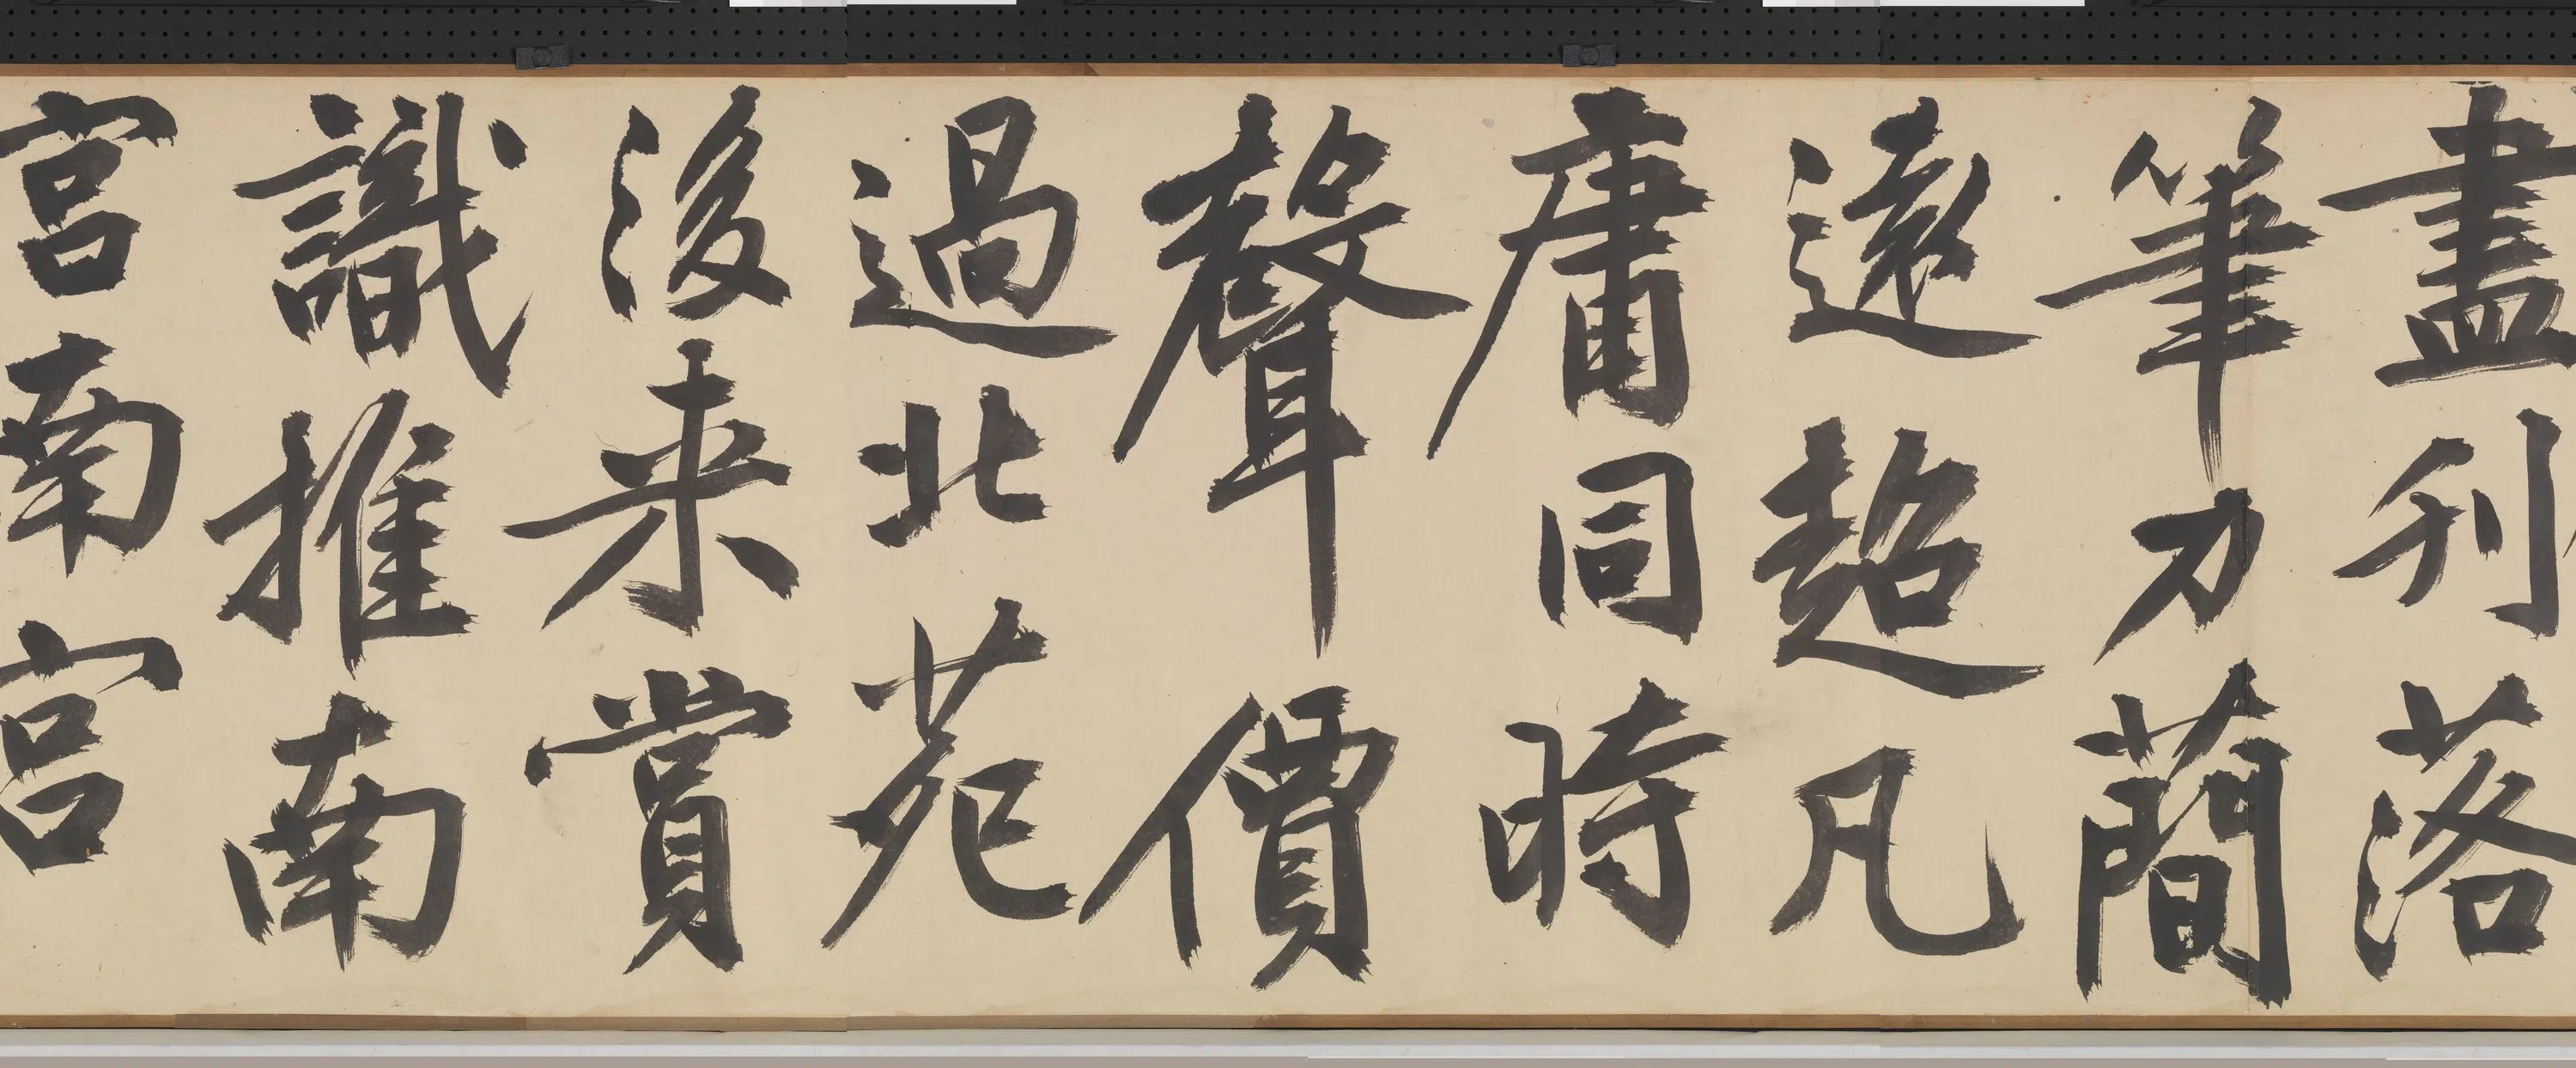 盡刊落
筆力蕳
遠超凡
庸同時
聲價
過北苑
後来賞
識推南
宮南宮